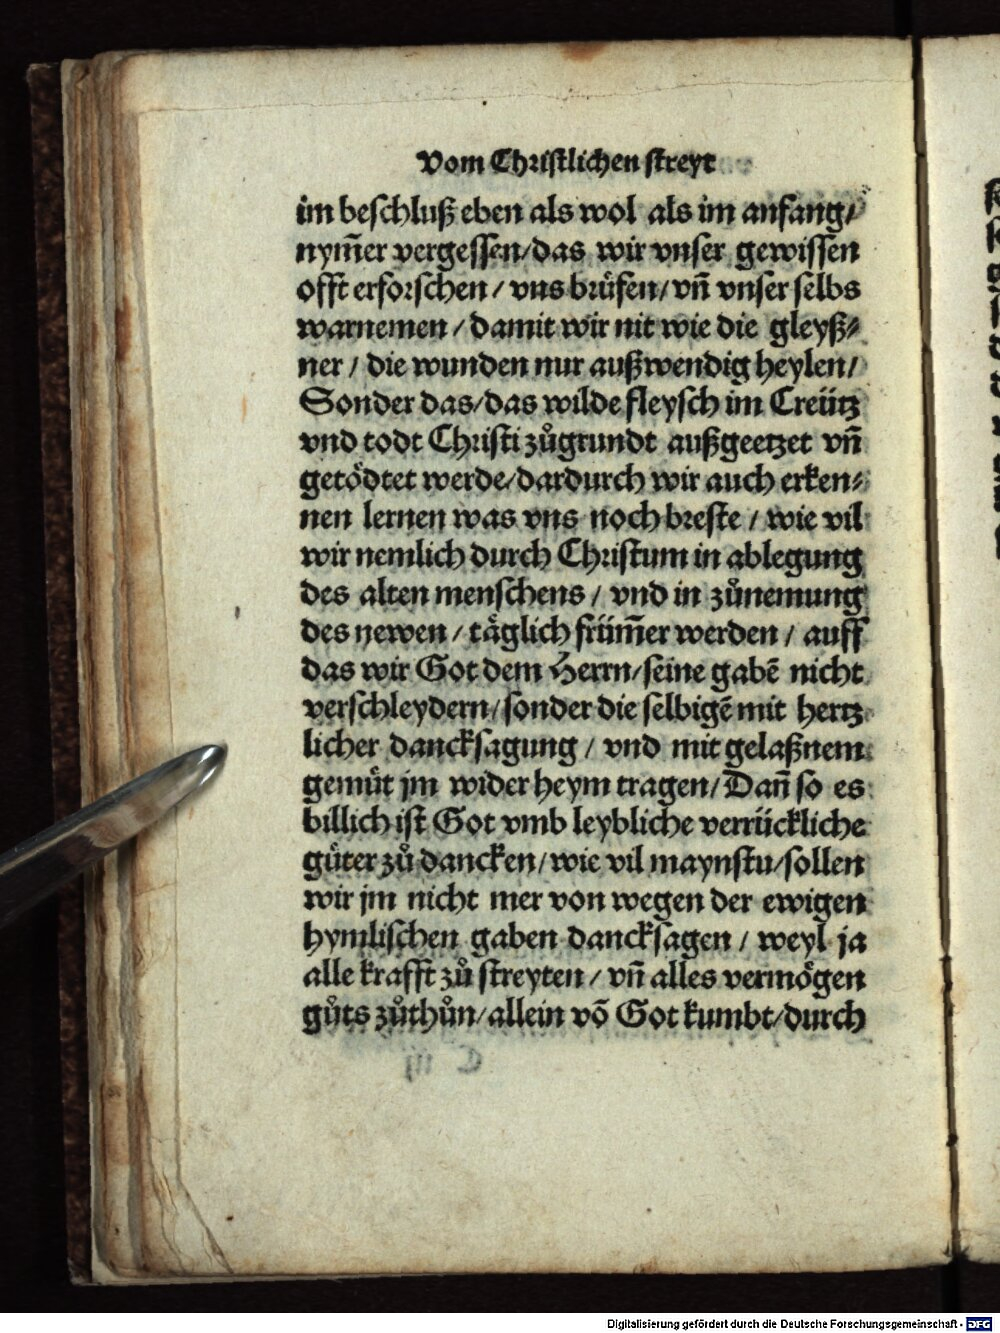 Vom Christlichen streyt
im beschluß eben als wol als im anfang/
nym̄er vergessen/das wir vnser gewissen
offt erforschen / vns brüfen/vn̄ vnser selbs
warnemen / damit wir nit wie die gleyß⸗
ner / die wunden nur außwendig heylen/
Sonder das/das wilde fleysch im Creütz
vnd todt Christi zůgrundt außgeetzet vn̄
getödtet werde/dardurch wir auch erken⸗
nen lernen was vns noch breste / wie vil
wir nemlich durch Christum in ablegung
des alten menschens / vnd in zůnemung
des newen / täglich früm̄er werden / auff
das wir Got dem Herrn/seine gabē nicht
verschleydern/sonder die selbigē mit hertz
licher dancksagung / vnd mit gelaßnem
gemüt jm wider heym tragen/Dan̄ so es
billich ist Got vmb leybliche verrückliche
güter zů dancken/wie vil maynstu/sollen
wir jm nicht mer von wegen der ewigen
hymlischen gaben dancksagen / weyl ja
alle krafft zů streyten / vn̄ alles vermögen
gůts zůthůn/allein vō Got kumbt/durch
Digitalisierung gefördert durch die Deutsche Forschungsgemeinschaft - DFG